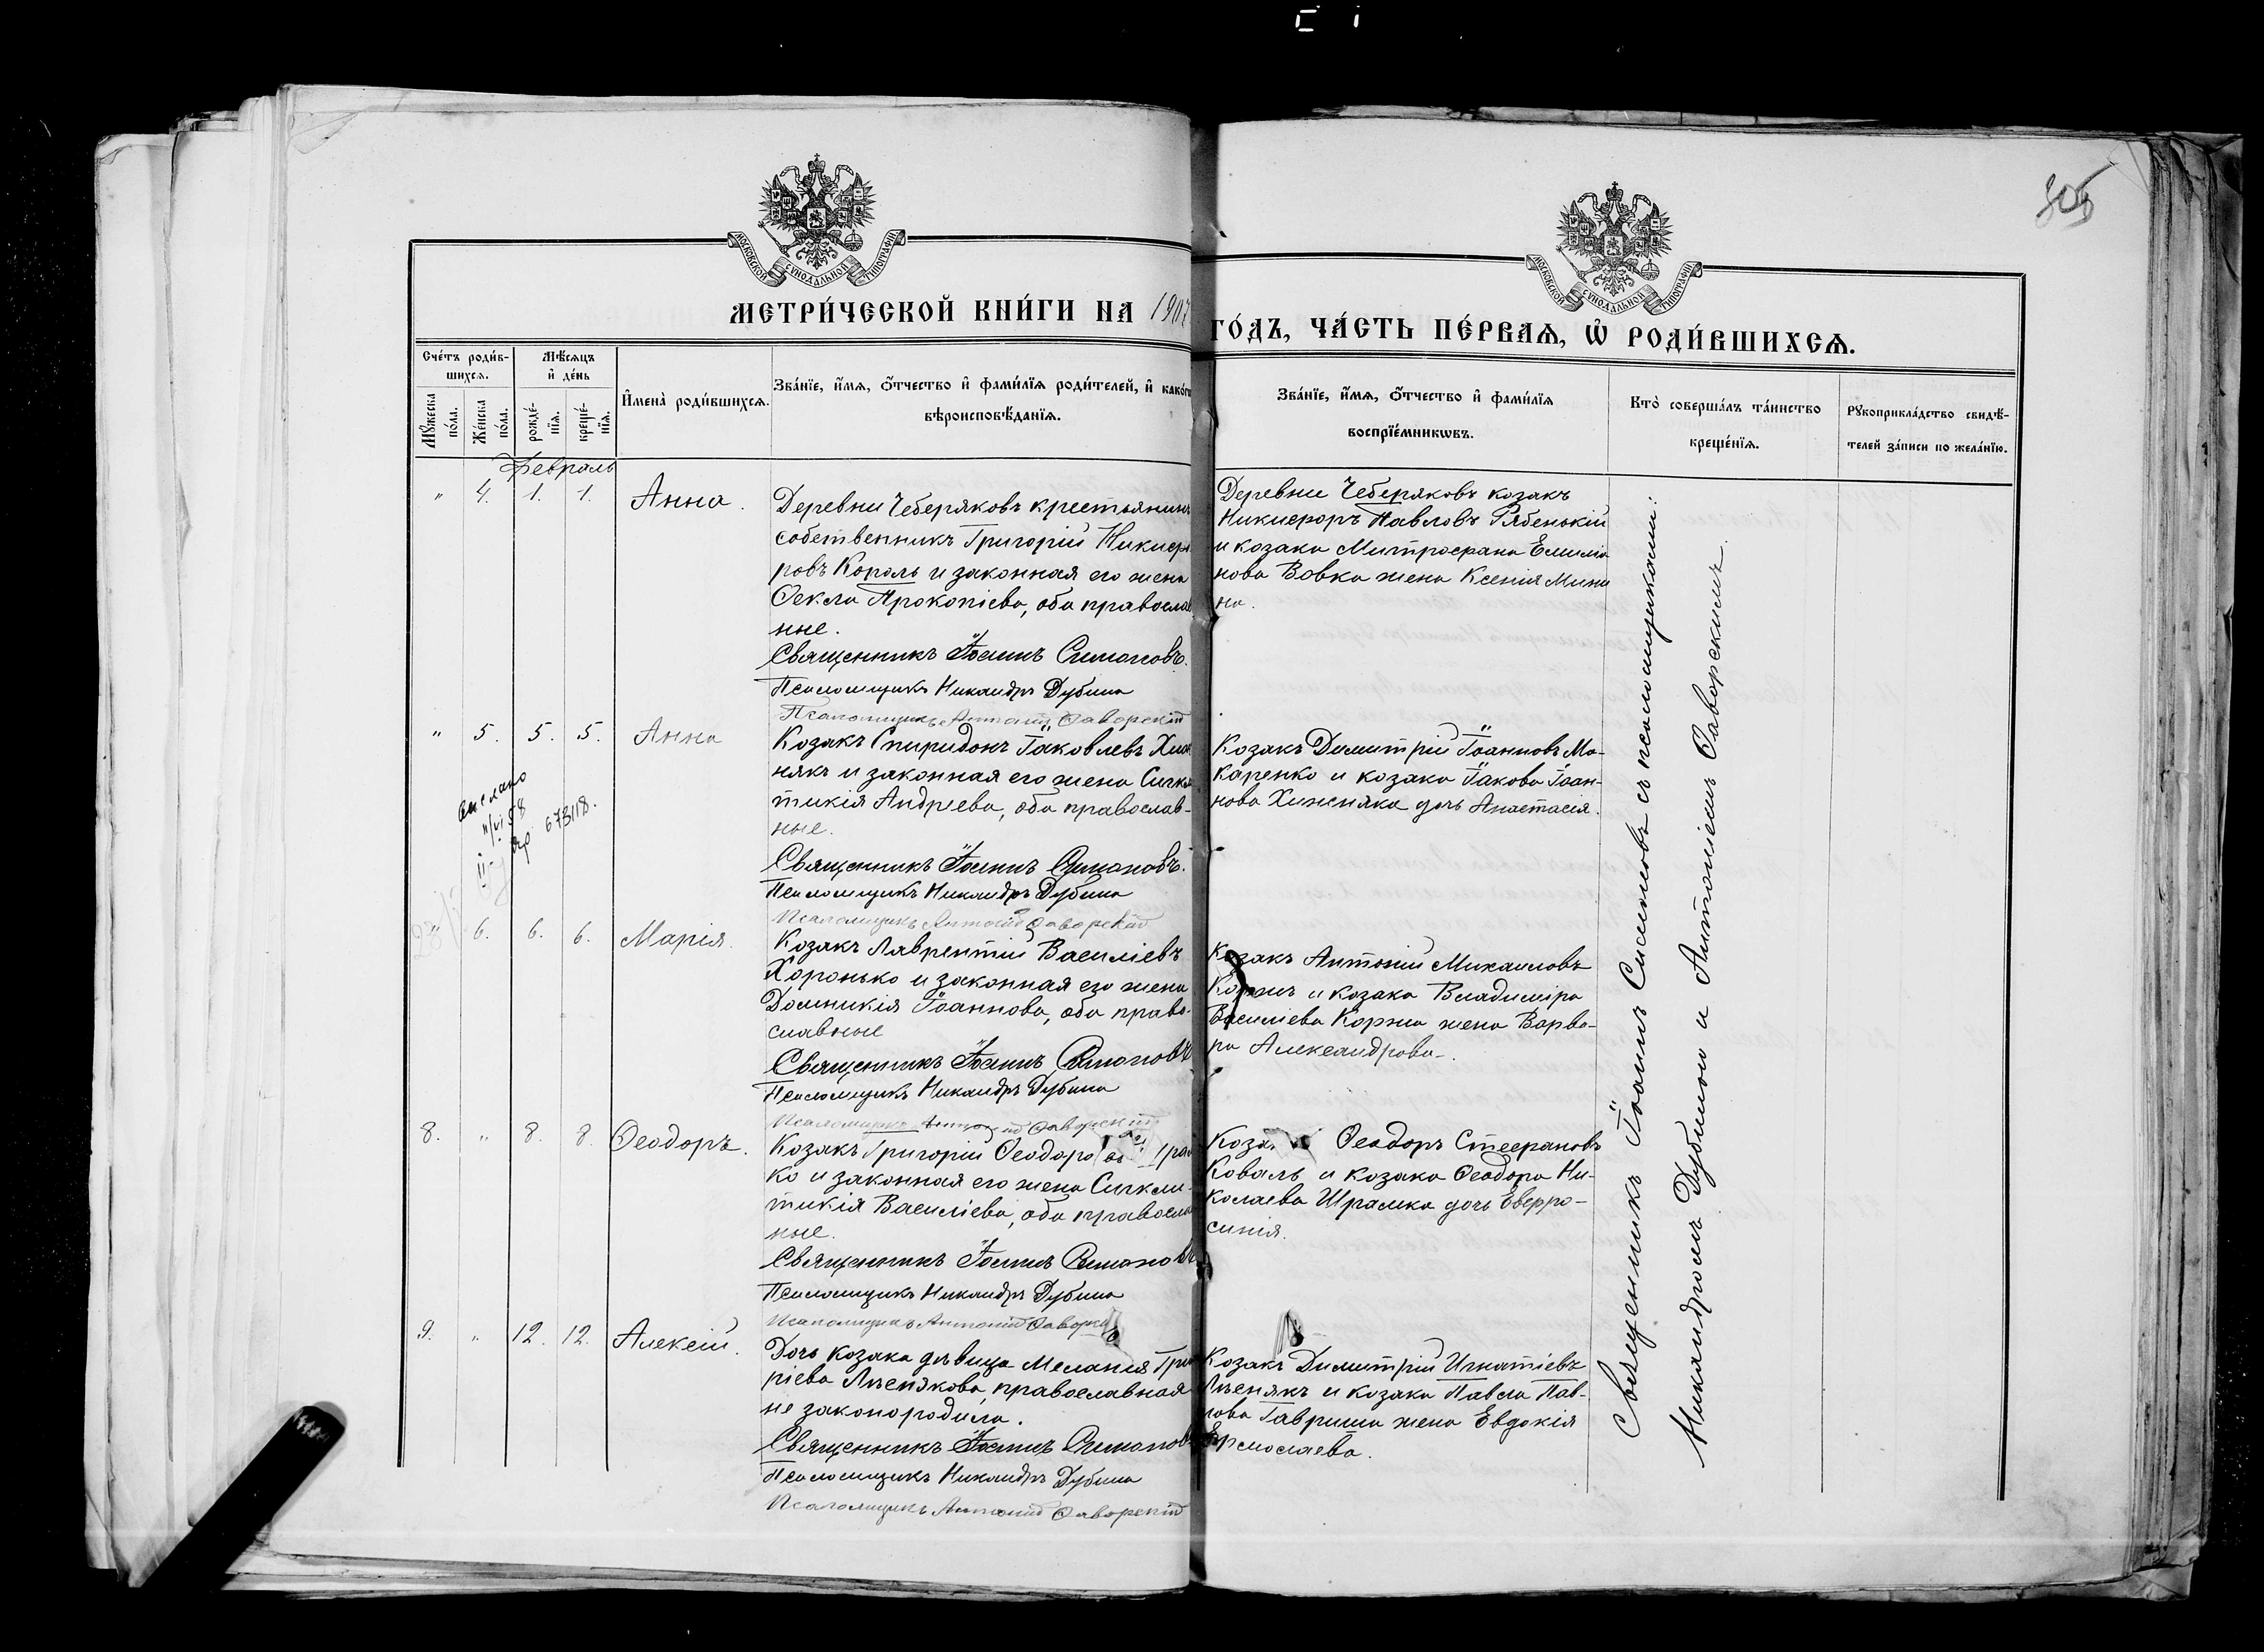 305
МОСКОВСКОЙ СѴНОДАЛЬНОЙ ТИПОГРАФІИ
МОСКОВСКОЙ СѴНОДАЛЬНОЙ ТИПОГРАФІИ
МЕТРИ́ЧЕСКОЙ КНИ́ГИ НА 1907
ГО́ДЪ, ЧА́СТЬ ПЕ́РВАѦ, Ѡ҆ РОДИ́ВШИХСѦ.
Сче́тъ роди́в-
шихсѧ.
Мѣ́сѧцъ
и҆ де́нь
Мꙋ́жеска
по́ла.
Же́нска
по́ла.
рожде́-
нїѧ.
креще́-
нїѧ.
И҆мена̀ роди́вшихсѧ.
Зва́нїе, и҆́мѧ, о҆́тчество и҆ фами́лїѧ роди́телей, и҆ како́гѡ
вѣроисповѣ́данїѧ.
Зва́нїе, и҆́мѧ, о҆́тчество и҆ фами́лїѧ
воспрїе́мникѡвъ.
Кто̀ соверша́лъ та́инство
креще́нїѧ.
Рꙋкоприкла́дство свидѣ́-
телей за́писи по жела́нїю.
Февраль
" 4. 1. 1. Анна.
Деревни Чеберяковъ крестьянинъ
собственникъ Григорій Никифо
ровъ Король и законная его жена
Ѳекла Прокопіева, оба православ
ные.
Священникъ Іоаннъ Симоновъ.
Псаломщикъ Никандръ Дубина
Псаломщикъ Антоній Ѳаворскій
Деревни Чеберяковъ козакъ
Никифоръ Павловъ Рябенькій
и козака Митрофана Емилiа
нова Вовка жена Ксенія Мини
на.
" 5. 5. 5. Анна
Козакъ Спиридонъ Іаковлевъ Хиж
някъ и законная его жена Сигкли
тикія Андреева, оба православ-
ные.
Священникъ Іоаннъ Симоновъ.
Псаломщикъ Никандръ Дубина
Псаломщикъ Антоній Ѳаворскій
Козакъ Димитрій Іоанновъ Ма-
каренко и козака Іакова Іоан-
нова Хижняка дочь Анастасія.
выслано
673/18.
" 6. 6. 6. Марія.
Козакъ Лаврентій Василіевъ
Хоронько и законная его жена
Домникія Іоаннова, оба право-
славные
Священникъ Іоаннъ Симоновъ
Псаломщикъ Никандръ Дубина
Псаломщикъ Антоній Ѳаворскій
Козакъ Антоній Михаиловъ
Коржъ и козака Владиміра
Василіева Коржа жена Варва-
ра Александрова.
8. " 8. 8. Ѳеодоръ.
Козакъ Григорій Ѳеодоро
ко и законная его жена Сигкли-
тикія Василіева, оба православ
ные.
Священникъ Іоаннъ Симоновъ
Псаломщикъ Никандръ Дубина
Псаломщикъ Антоній Ѳаворскій
Коза Ѳеодоръ Стефановъ
Коваль и козака Ѳеодора Ни-
колаева Шрамка дочь Евфро-
синія.
9. " 12. 12. Алексій.
Дочь козака дѣвица Меланія Григо
ріева Лѣснякова, православная
не законородила.
Священникъ Іоаннъ Симоновъ
Псаломщикъ Никандръ Дубина
Псаломщикъ Антоній Ѳаворскій
Козакъ Димитрій Игнатіевъ
Лѣснякъ и козака Павла Пав-
лова Гавриша жена Евдокія
Ермолаева.
Священникъ Іоаннъ Симоновъ съ псаломщиками:
Никандромъ Дубиною и Антоніемъ Ѳаворскимъ.